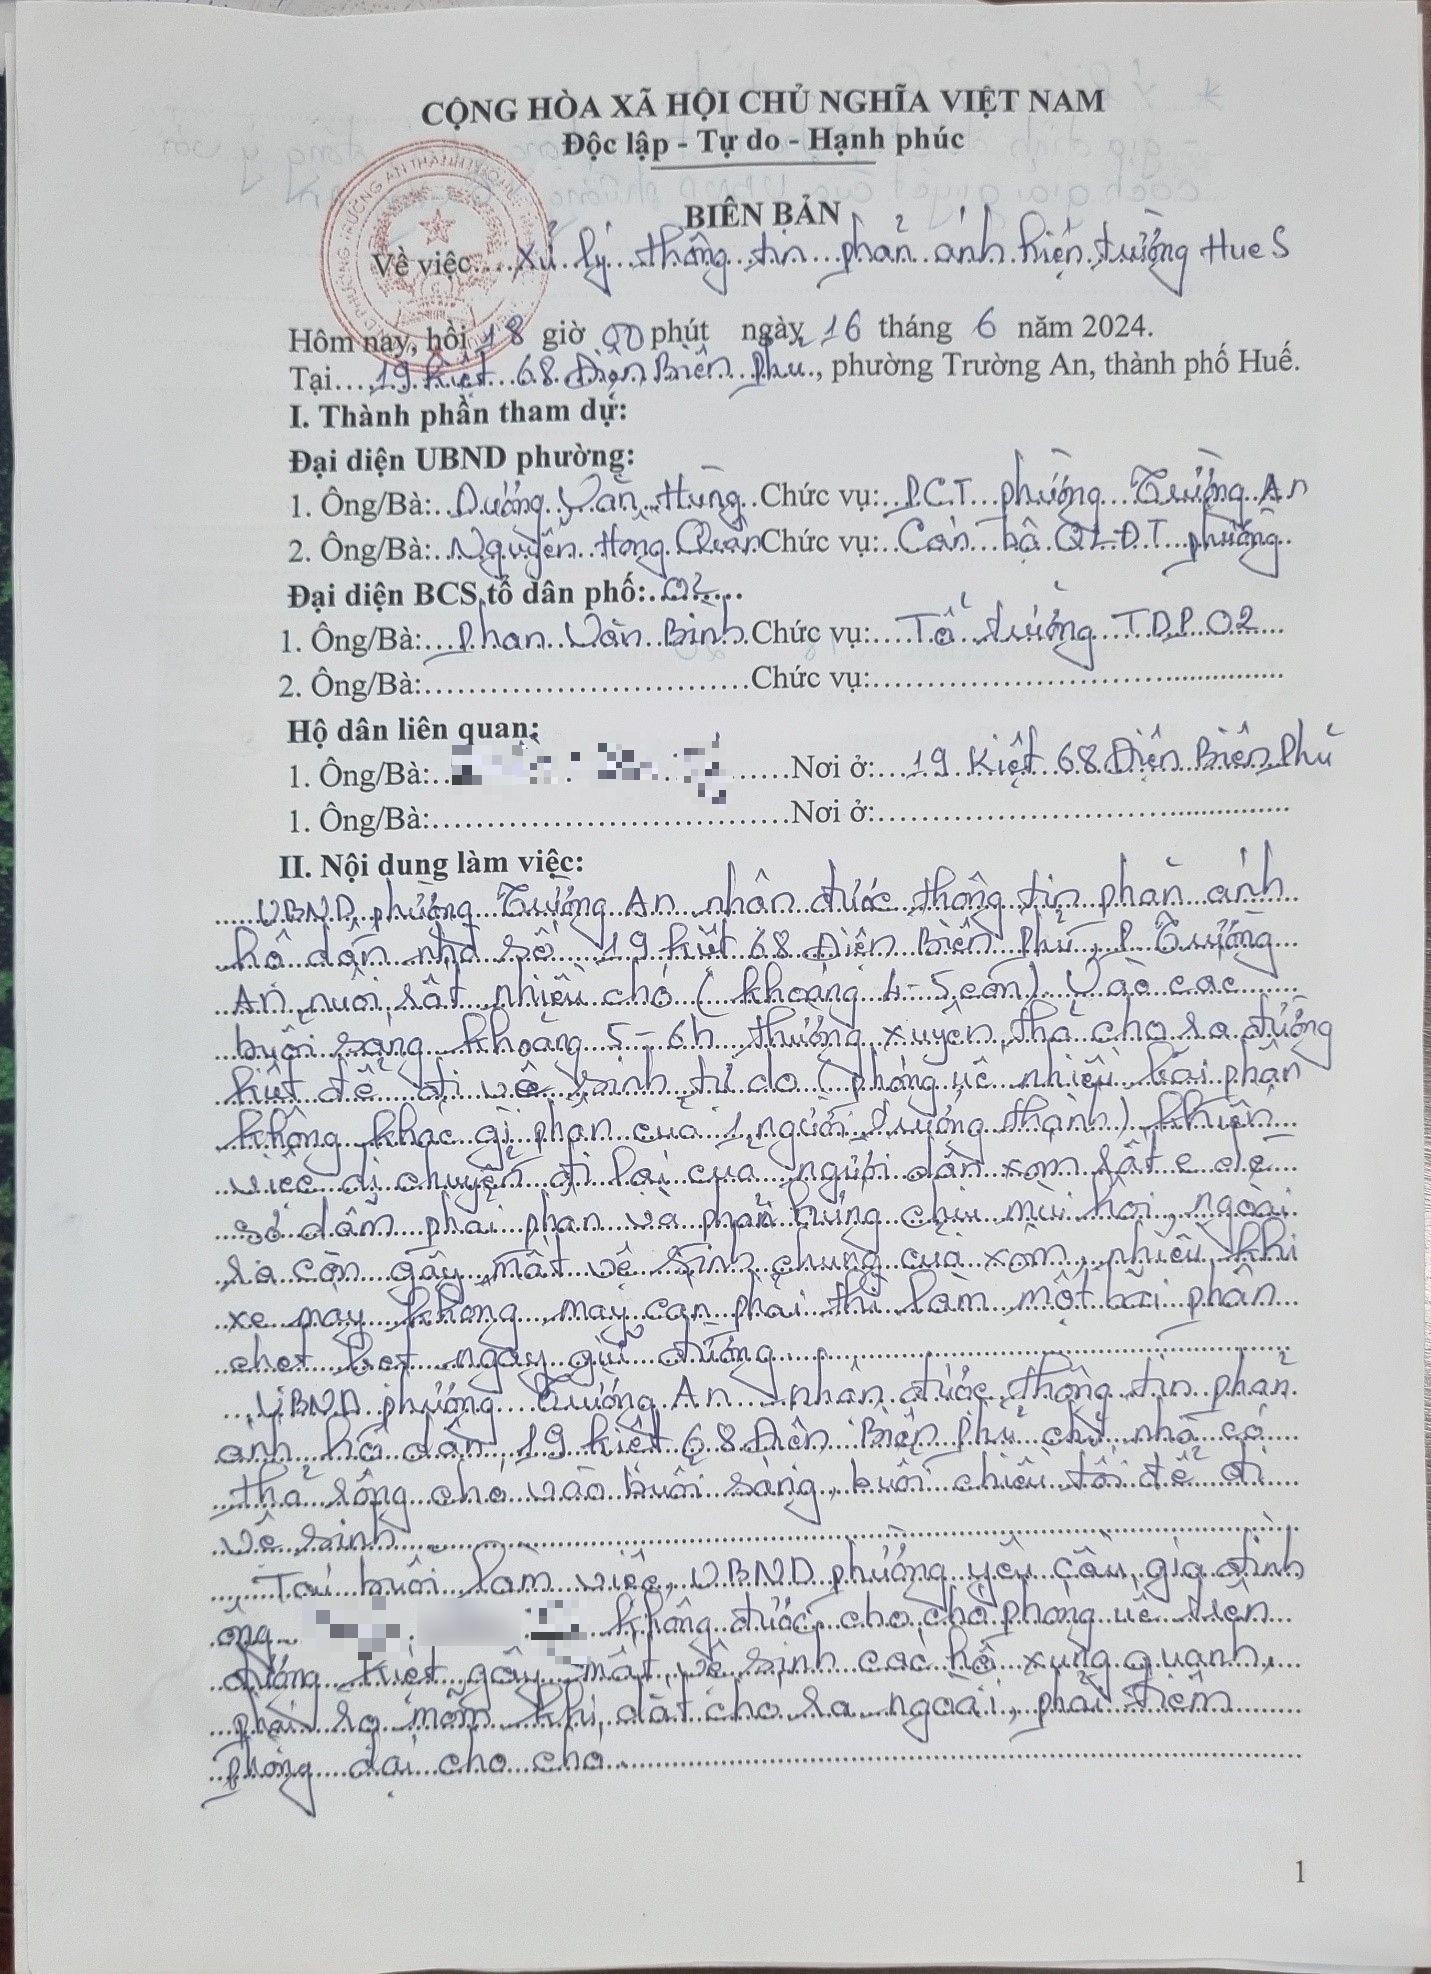 CỘNG HÒA XÃ HỘI CHỦ NGHĨA VIỆT NAM
Độc lập - Tự do - Hạnh phúc
BIÊN BẢN
Về việc....Xử lý thông tin phản ánh hiện trường Hue S
Hôm nay, hồi 18 giờ 00 phút ngày 16 tháng 6 năm 2024.
Tại....19 Kiệt 68 Điện Biên Phủ, phường Trường An, thành phố Huế.
I. Thành phần tham dự:
Đại diện UBND phường:
1. Ông/Bà: Dương Văn Hùng Chức vụ: P.C.T phường Trường An
2. Ông/Bà: Nguyễn Hồng Quân Chức vụ: Cán bộ QLĐT phường
Đại diện BCS tổ dân phố: 02
1. Ông/Bà: Phan Văn Bình Chức vụ: Tổ trưởng TDP 02
2. Ông/Bà:..............................Chức vụ:..............................
Hộ dân liên quan:
1. Ông/Bà: Nơi ở: 19 Kiệt 68 Điện Biên Phủ
1. Ông/Bà:..............................Nơi ở:..............................
II. Nội dung làm việc:
UBND phường Trường An nhận được thông tin phản ánh
hộ dân nhà số 19 kiệt 68 Điện Biên Phủ, P Trường
An nuôi rất nhiều chó (khoảng 4-5 con). Vào các
buổi sáng khoảng 5-6h thường xuyên thả chó ra đường
kiệt để đi vệ sinh tự do (phóng uế nhiều bãi phân
không khác gì phân của 1 người trưởng thành) khiến
việc di chuyển đi lại của người dân xóm rất e dè
sợ dẫm phải phân và phải hứng chịu mùi hôi, ngoài
ra còn gây mất vệ sinh chung của xóm, nhiều khi
xe máy không may cán phải thì làm một bãi phân
chẹt bẹt ngay giữa đường
UBND phường Trường An nhận được thông tin phản
ánh hộ dân 19 kiệt 68 Điện Biên Phủ chủ nhà có
thả rông chó vào buổi sáng, buổi chiều tối để đi
vệ sinh
Tại buổi làm việc, UBND phường yêu cầu gia đình
ông không được cho chó phóng uế trên
đường kiệt gây mất vệ sinh các hộ xung quanh,
phải rọ mõm khi dắt chó ra ngoài, phải tiêm
phòng dại cho chó
1